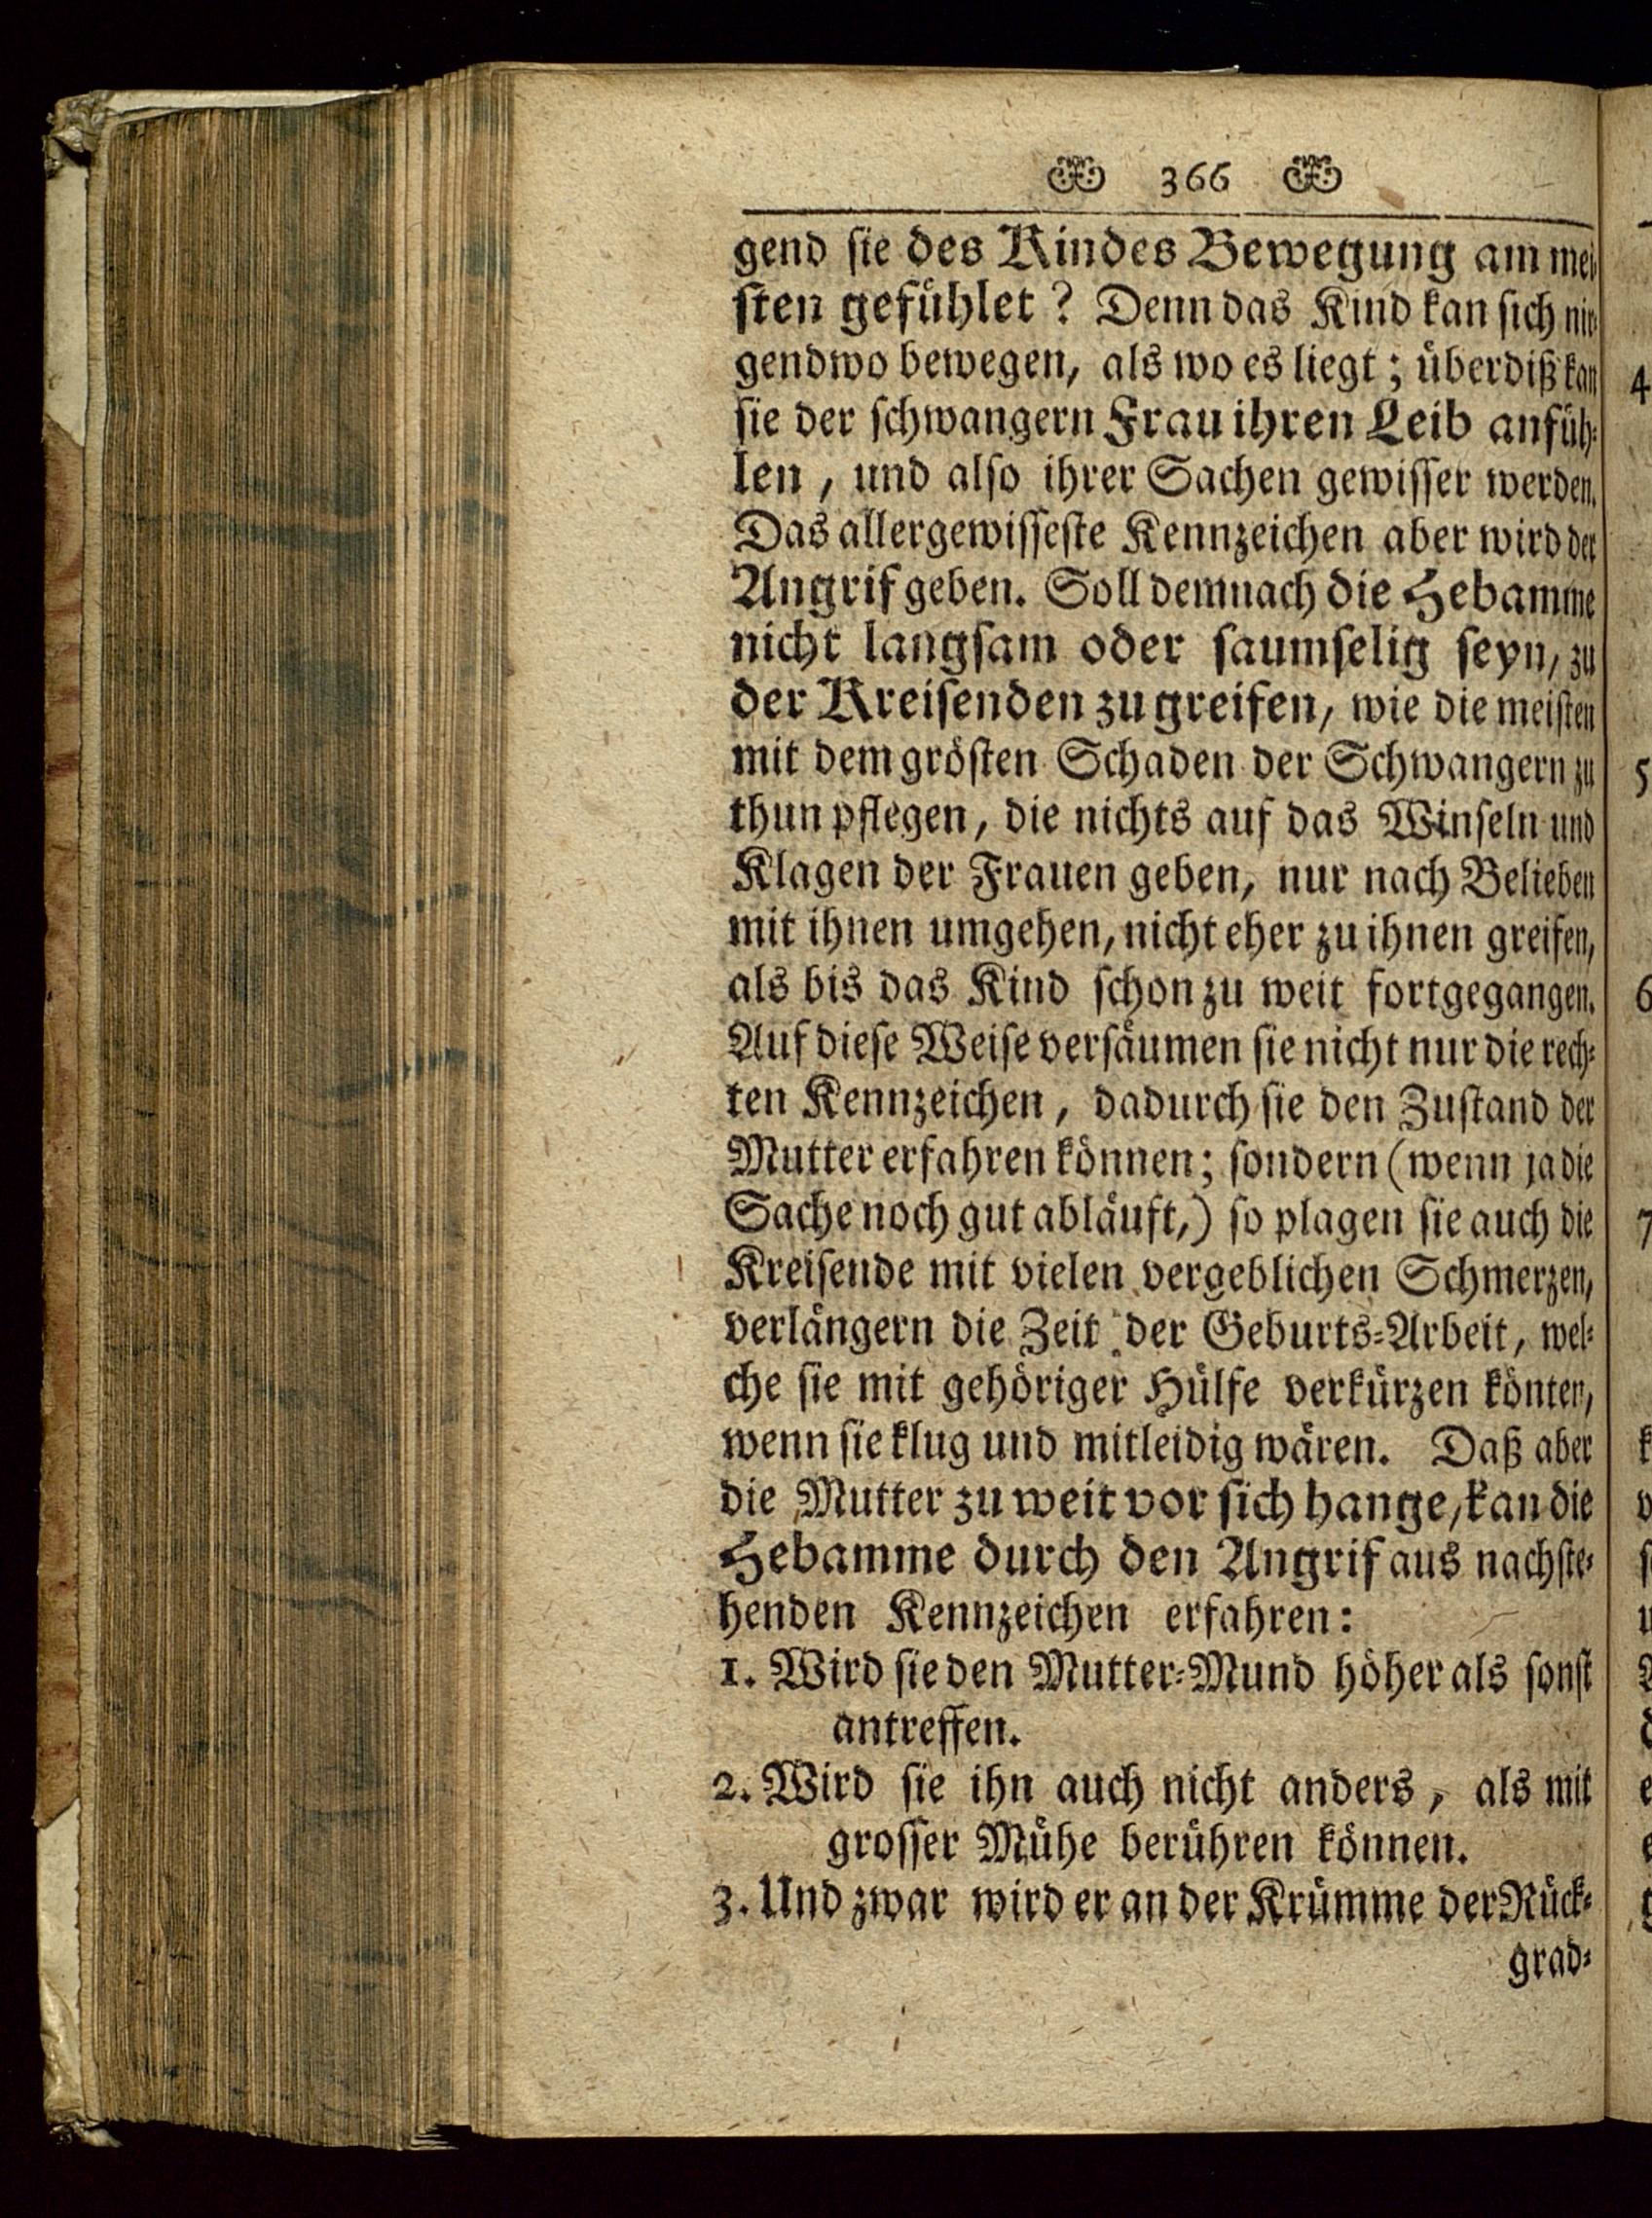 366
gend sie des Kindes Bewegung am mei-
sten gefühlet? Denn das Kind kan sich nir-
gendwo bewegen, als wo es liegt; überdiß kan
sie der schwangern Frau ihren Leib anfüh-
len, und also ihrer Sachen gewisser werden.
Das allergewisseste Kennzeichen aber wird der
Angrif geben. Soll demnach die Hebamme
nicht langsam oder saumselig seyn, zu
der Kreisenden zu greifen, wie die meisten
mit dem grösten Schaden der Schwangern zu
thun pflegen, die nichts auf das Winseln und
Klagen der Frauen geben, nur nach Belieben
mit ihnen umgehen, nicht eher zu ihnen greifen,
als bis das Kind schon zu weit fortgegangen.
Auf diese Weise versäumen sie nicht nur die rech-
ten Kennzeichen, dadurch sie den Zustand der
Mutter erfahren können; sondern (wenn ja die
Sache noch gut abläuft,) so plagen sie auch die
Kreisende mit vielen vergeblichen Schmerzen,
verlängern die Zeit der Geburts-Arbeit, wel-
che sie mit gehöriger Hülfe verkürzen könten,
wenn sie klug und mitleidig wären. Daß aber
die Mutter zu weit vor sich hange, kan die
Hebamme durch den Angrif aus nachste-
henden Kennzeichen erfahren:
1. Wird sie den Mutter-Mund höher als sonst
antreffen.
2. Wird sie ihn auch nicht anders, als mit
grosser Mühe berühren können.
3. Und zwar wird er an der Krümme der Rück-
grad-
4
5
6
7